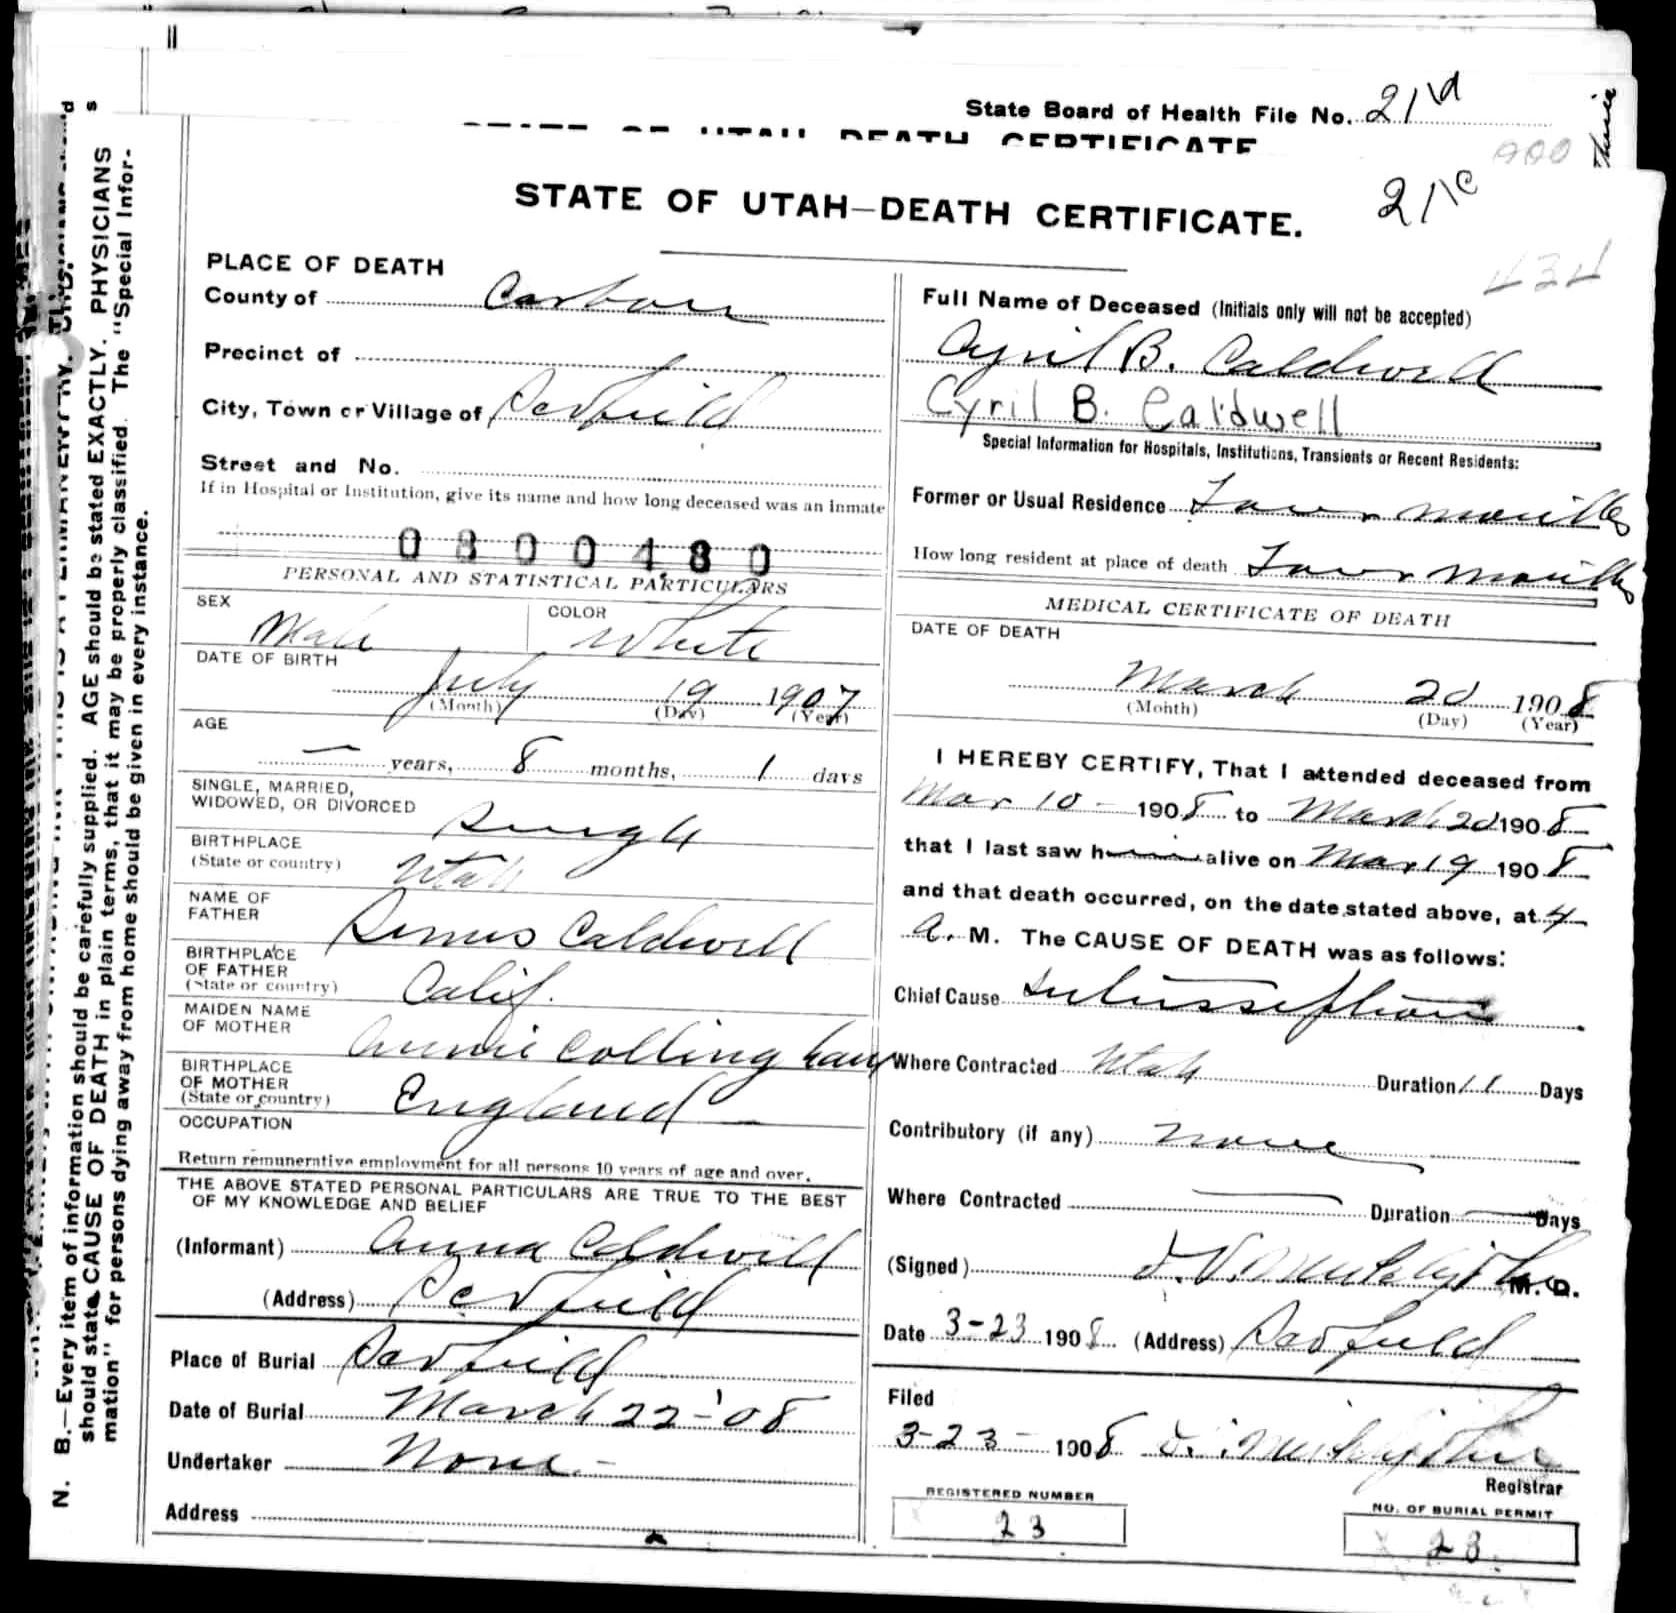 State Board of Health File No. 21d
STATE OF UTAH DEATH CERTIFICATE
900
21c
STATE OF UTAH—DEATH CERTIFICATE.
434
PLACE OF DEATH
County of Carbon
Precinct of
City, Town or Village of
Street and No.
If in Hospital or Institution, give its name and how long deceased was an inmate
0800480
Full Name of Deceased (Initials only will not be accepted)
Cyril B. Caldwell
Cyril B. Caldwell
Special Information for Hospitals, Institutions, Transients or Recent Residents:
Former or Usual Residence Four months
How long resident at place of death Four months
PERSONAL AND STATISTICAL PARTICULARS
SEX Male COLOR White
DATE OF BIRTH
July 19 1907
(Month) (Day) (Year)
AGE
— years, 8 months, 1 days
SINGLE, MARRIED,
WIDOWED, OR DIVORCED Single
BIRTHPLACE
(State or country) Utah
NAME OF
FATHER Caldwell
BIRTHPLACE
OF FATHER
(State or country) Calif.
MAIDEN NAME
OF MOTHER Annie
BIRTHPLACE
OF MOTHER
(State or country) England —
OCCUPATION
Return remunerative employment for all persons 10 years of age and over.
THE ABOVE STATED PERSONAL PARTICULARS ARE TRUE TO THE BEST
OF MY KNOWLEDGE AND BELIEF
(Informant) Anna Caldwell
(Address)
Place of Burial
Date of Burial March 22-'08
Undertaker None -
Address
MEDICAL CERTIFICATE OF DEATH
DATE OF DEATH
March 20 1908
(Month) (Day) (Year)
I HEREBY CERTIFY, That I attended deceased from
Mar 10 - 1908 to March 20 1908
that I last saw him alive on Mar 19 1908
and that death occurred, on the date stated above, at 4
A. M. The CAUSE OF DEATH was as follows:
Chief Cause Intussception
Where Contracted Utah Duration 11 Days
Contributory (if any) none
Where Contracted — Duration — Days
(Signed) M. D.
Date 3-23 1908 (Address)
Filed
3-23- 1908
Registrar
REGISTERED NUMBER
23
NO. OF BURIAL PERMIT
23
N. B.—Every item of information should be carefully supplied. AGE should be stated EXACTLY. PHYSICIANS
should state CAUSE OF DEATH in plain terms, that it may be properly classified. The "Special Infor-
mation" for persons dying away from home should be given in every instance.